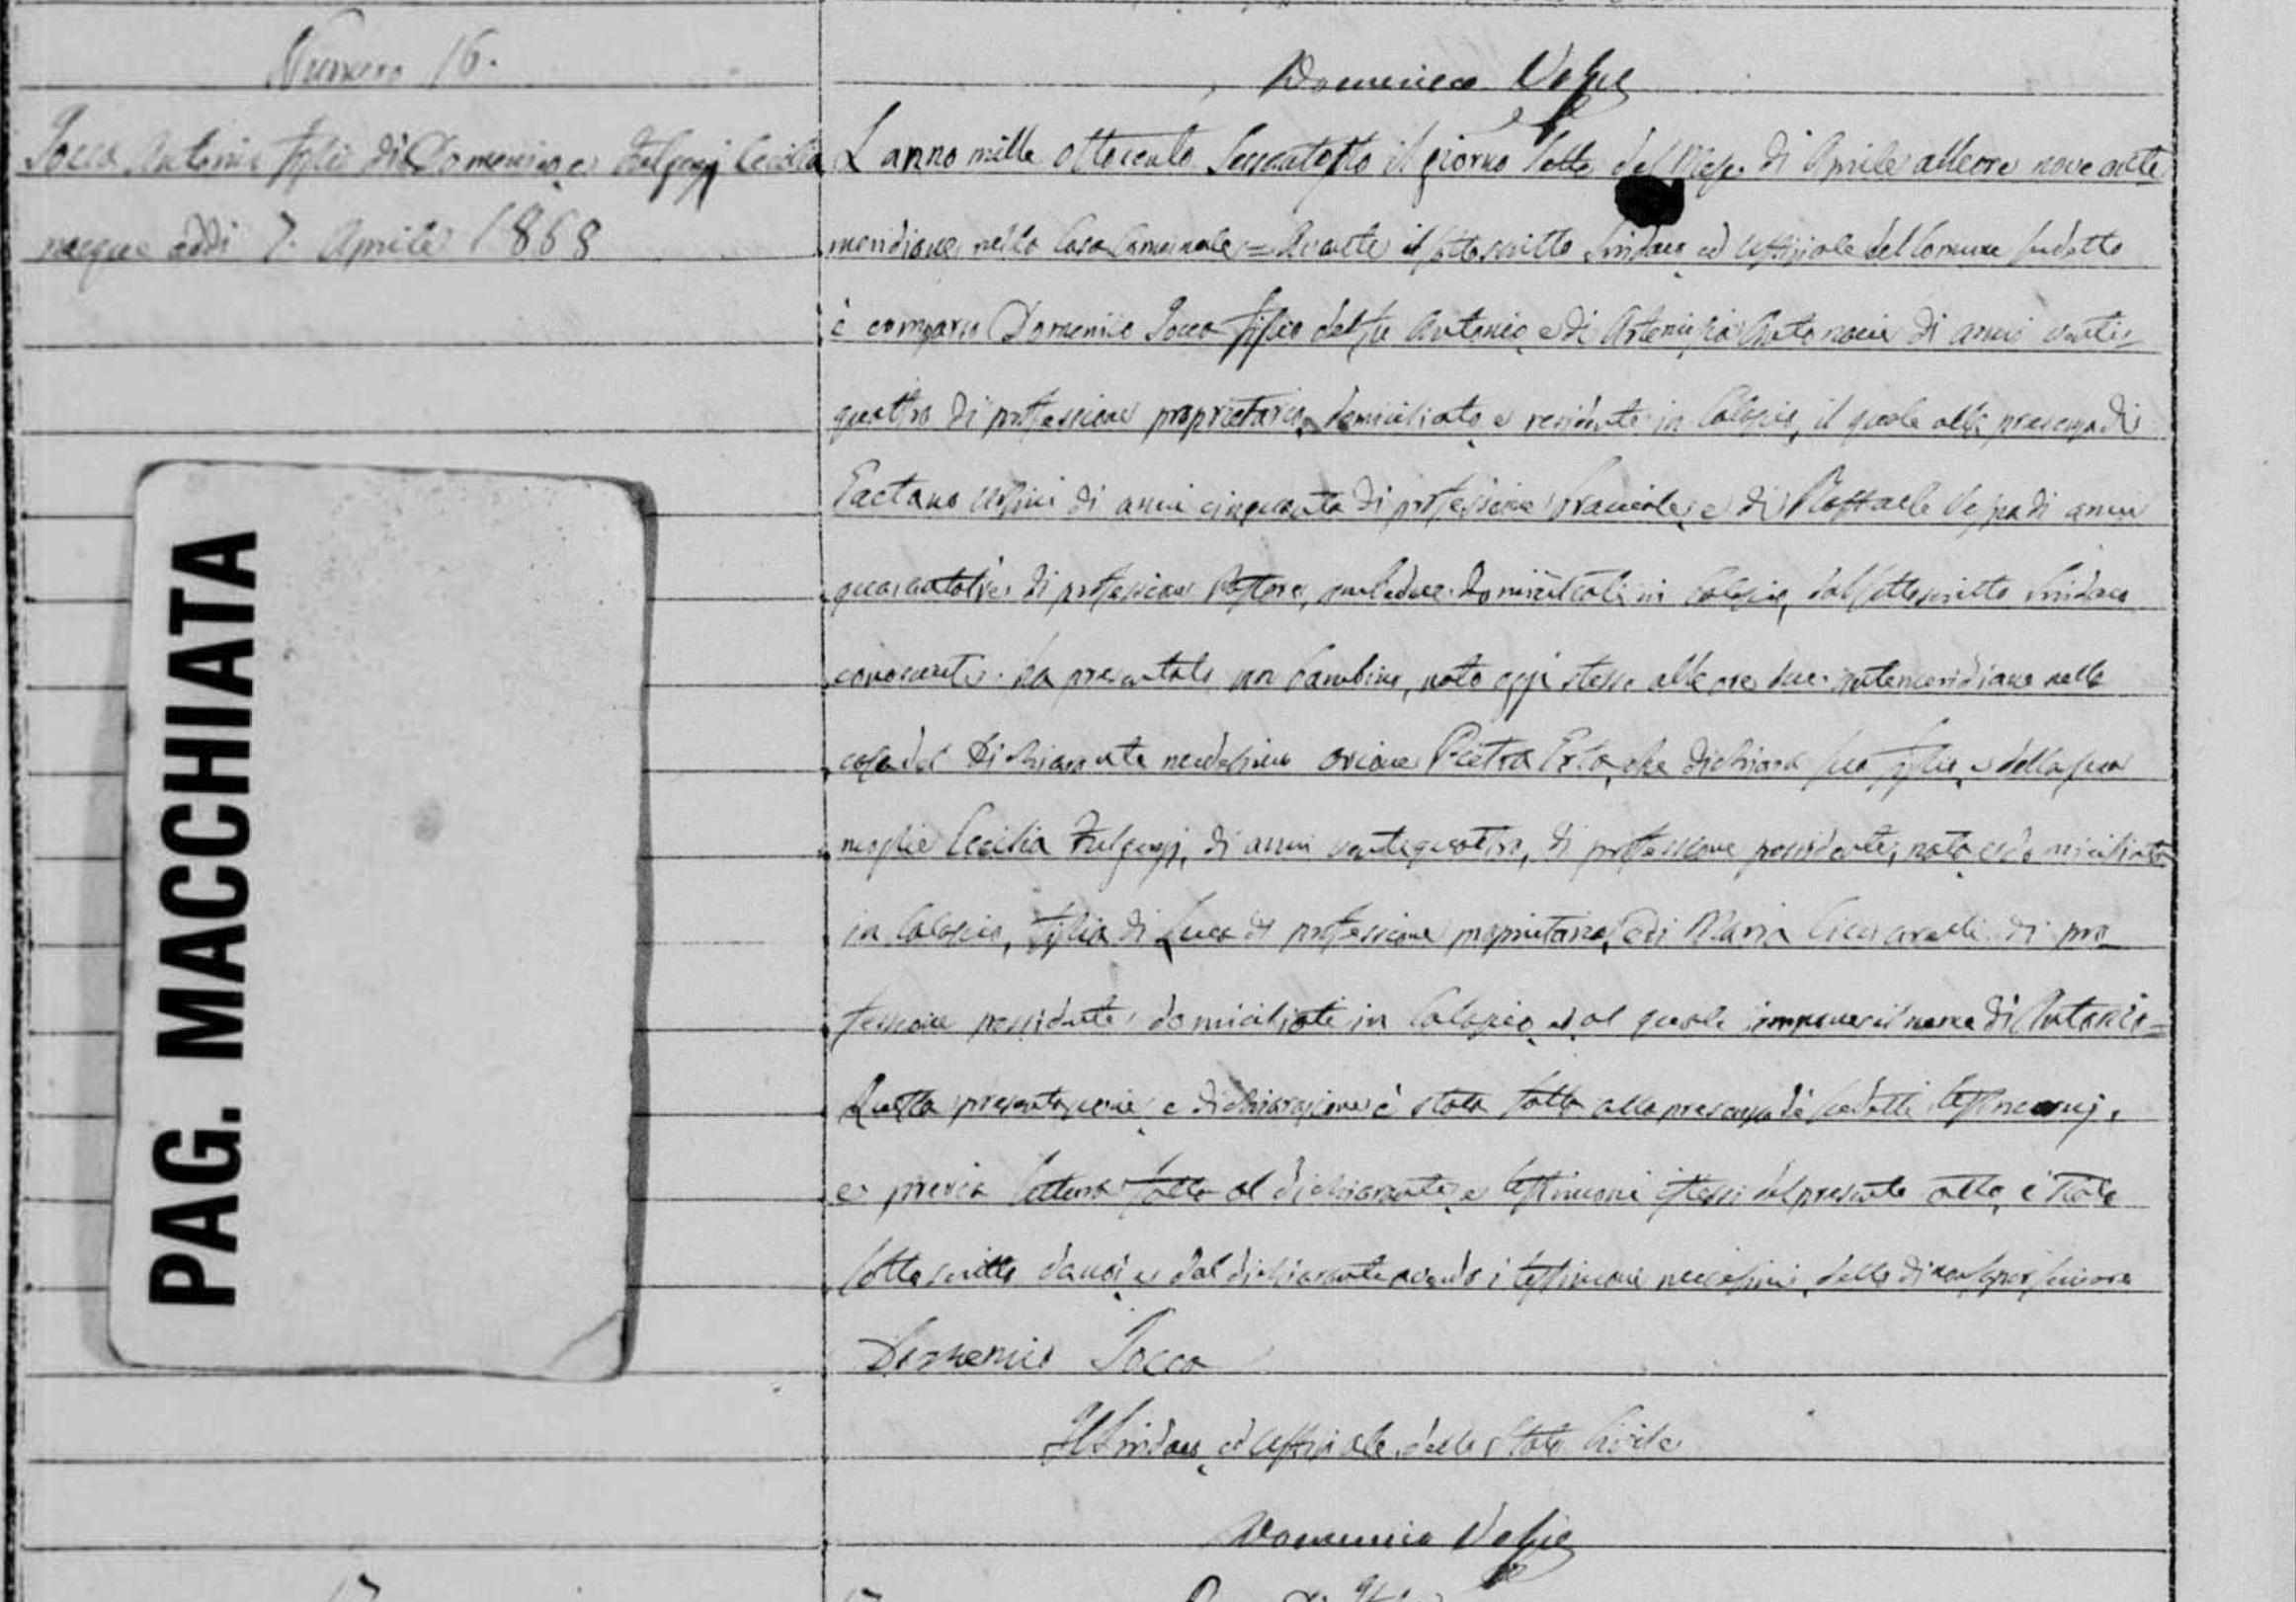 Numero 16.
Iocca Antonio figlio di Domenico e Fulgenzj Cecilia
nacque addi 7. Aprile 1868
PAG. MACCHIATA
Domenico
L'anno mille ottocento Sessantotto il giorno Sette del Mese di Aprile alleore nove ante
meridiane nella Casa Comunale = Avante il sottoscritto Sindaco ed Uffiziale del Comune sudetto
è comparso Domenico Iocca figlio del fu Antonio, e di Artemisia Antonacci di anni venti=
quattro di professione proprietario, domiciliato e residente in Calascio, il quale alla presenza di
Gaetano di anni cinquanta di professione e di Raffaele di anni
quarantatre di professione Pastore, ambedue domiciliati in Calascio, dal sottoscritto Sindaco
conosciuti. ha presentato un bambino, nato oggi stesso alle ore due antemeridiane nella
casa del Dichiarante medesimo rione Pietra che dichiara suo figlio, e della sua
moglie Cecilia Fulgenzj, di anni ventiquattro, di professione possidente, nata e domiciliata
in Calascio, figlia di Luca di professione proprietario, e di Maria Ciccarelli di pro
fessione possidente domiciliati in Calascio, ed al quale impone il nome di Antonio =
Questa presentazione, e dichiarazione è stata fatta alla presenza dè sudetti testimonj,
e previa lettura fatta al dichiarante, e testimoni istessi del presente atto, è stato
sottoscritto da noi, e dal dichiarante avendo i testimoni medesimi, detto di non saper scrivere
Domenico Iocca
Il Sindaco, ed Uffiziale dello Stato Civile
Domenico
17